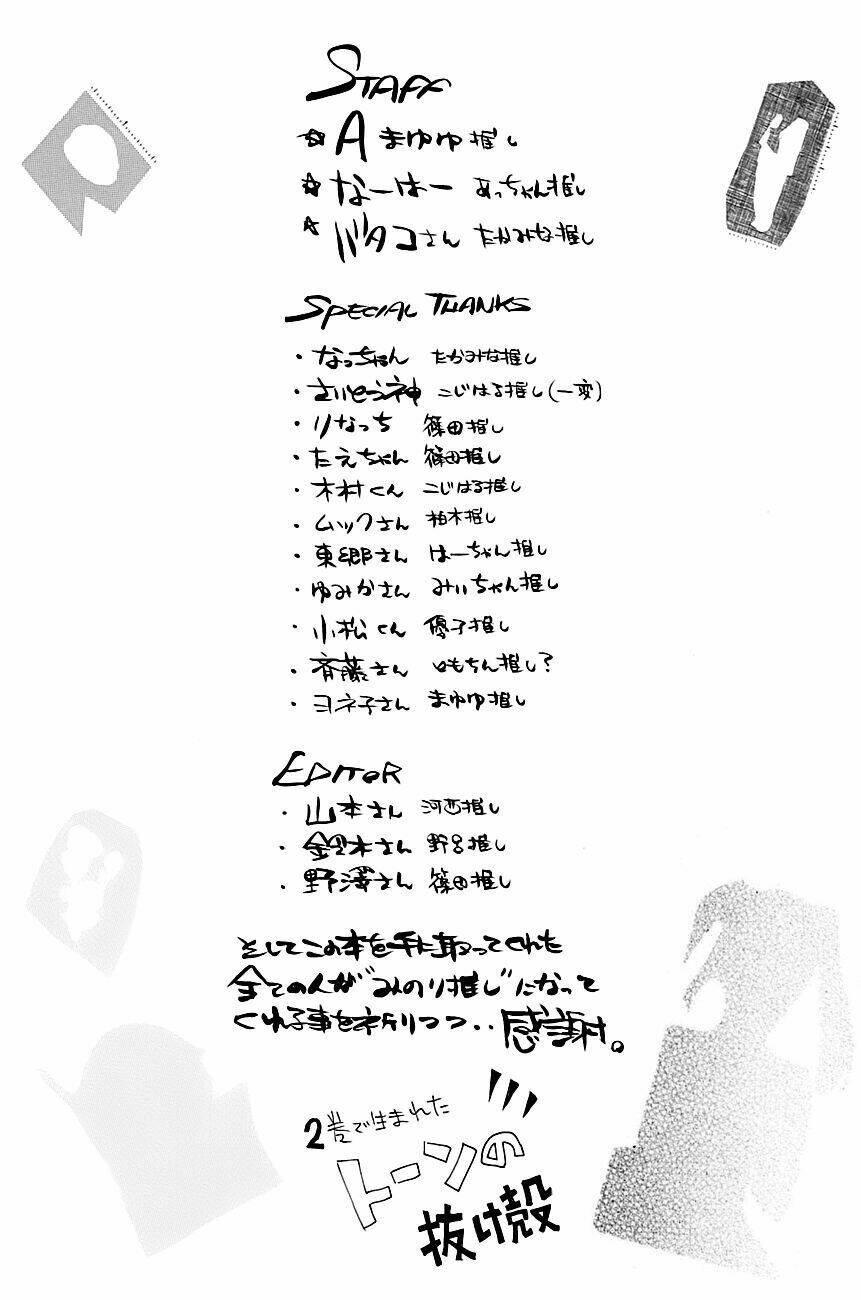 STAFF
☆A まゆゆ推し
☆なーはー あっちゃん推し
☆バタコさん たかみな推し
SPECIAL THANKS
・なっちゃん たかみな推し
・さいとう神 こじはる推し(一変)
・りなっち 篠田推し
・たえちゃん 篠田推し
・木村くん こじはる推し
・ムックさん 柏木推し
・東郷さん はーちゃん推し
・ゆみかさん みぃちゃん推し
・小松くん 優子推し
・斉藤さん ともちん推し?
・ヨネ子さん まゆゆ推し
EDITOR
・山本さん 河西推し
・鈴木さん 野呂推し
・野澤さん 篠田推し
そしてこの本を手に取ってくれた
全ての人が"みのり推し"になって
くれる事を祈りつつ・・感謝。
2巻で生まれた
トーンの
抜け殻